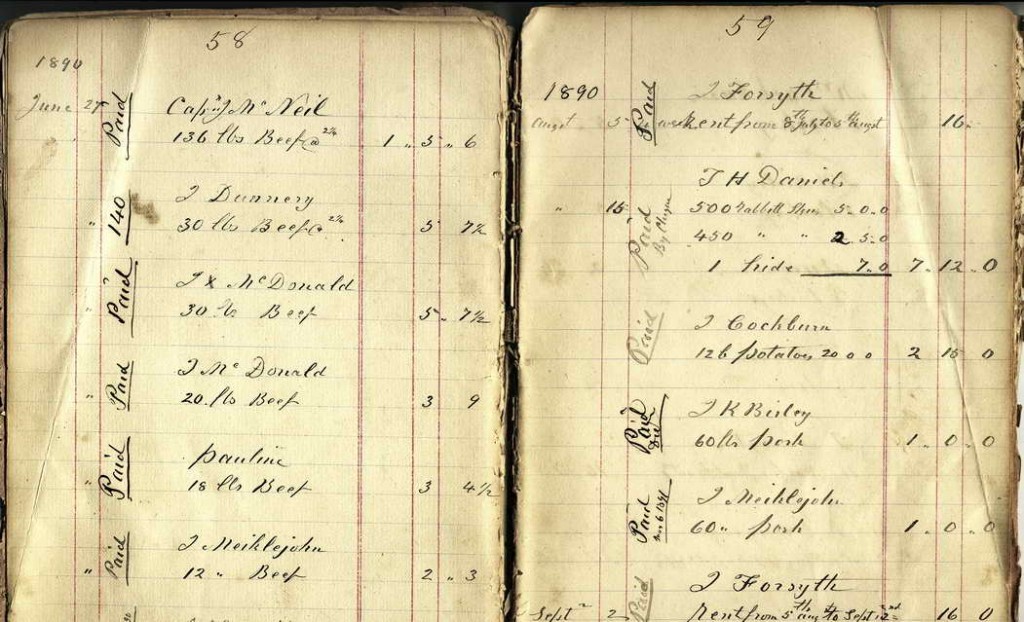 58
1890
June 27 Paid Capn J Mc Neil
136 lbs Beef @ 2¼ 1 " 5 " 6
140 J Dunnery
" 30 lbs Beef @ 2¼ 5 7½
Paid J & McDonald
" 30 lbs Beef 5 " 7½
Paid J Mc Donald
" 20 lbs Beef 3 9
Paid Pauline
" 18 lbs Beef 3 4½
Paid J Meiklejohn
" 12 " Beef 2 " 3
59
1890 Paid J Forsyth
Augst 5 Rent from 8th July to 5th Augst 16 -
Paid By Cheque J H Daniels
" 15 500 Rabbitt Skins 5-0-0
450 " " 2 5-0
1 hide 7-0 7-12-0
Paid J Cochburn
126 potatoes 20 0 0 2 10 0
Paid J K Birley
60 lbs pork 1-0-0
Paid J Meiklejohn
60 " pork 1-0-0
Paid J Forsyth
Sept 2 Rent from 5th Aug to Sept 2nd 16 0